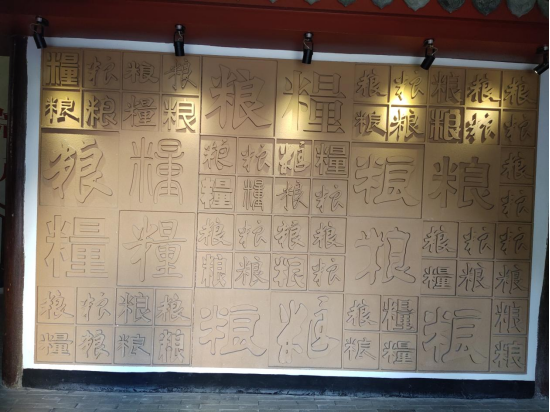 糧粮粮粮粮糧粮粮粮粮粮
粮粮糧粮粮粮粮粮粮
粮糧粮粮粮糧粮粮粮
糧糧粮粮粮
糧糧粮粮粮粮粮粮粮粮
粮粮粮粮糧粮粮
粮粮粮粮粮粮粮糧粮粮
糧粮粮粮粮糧粮